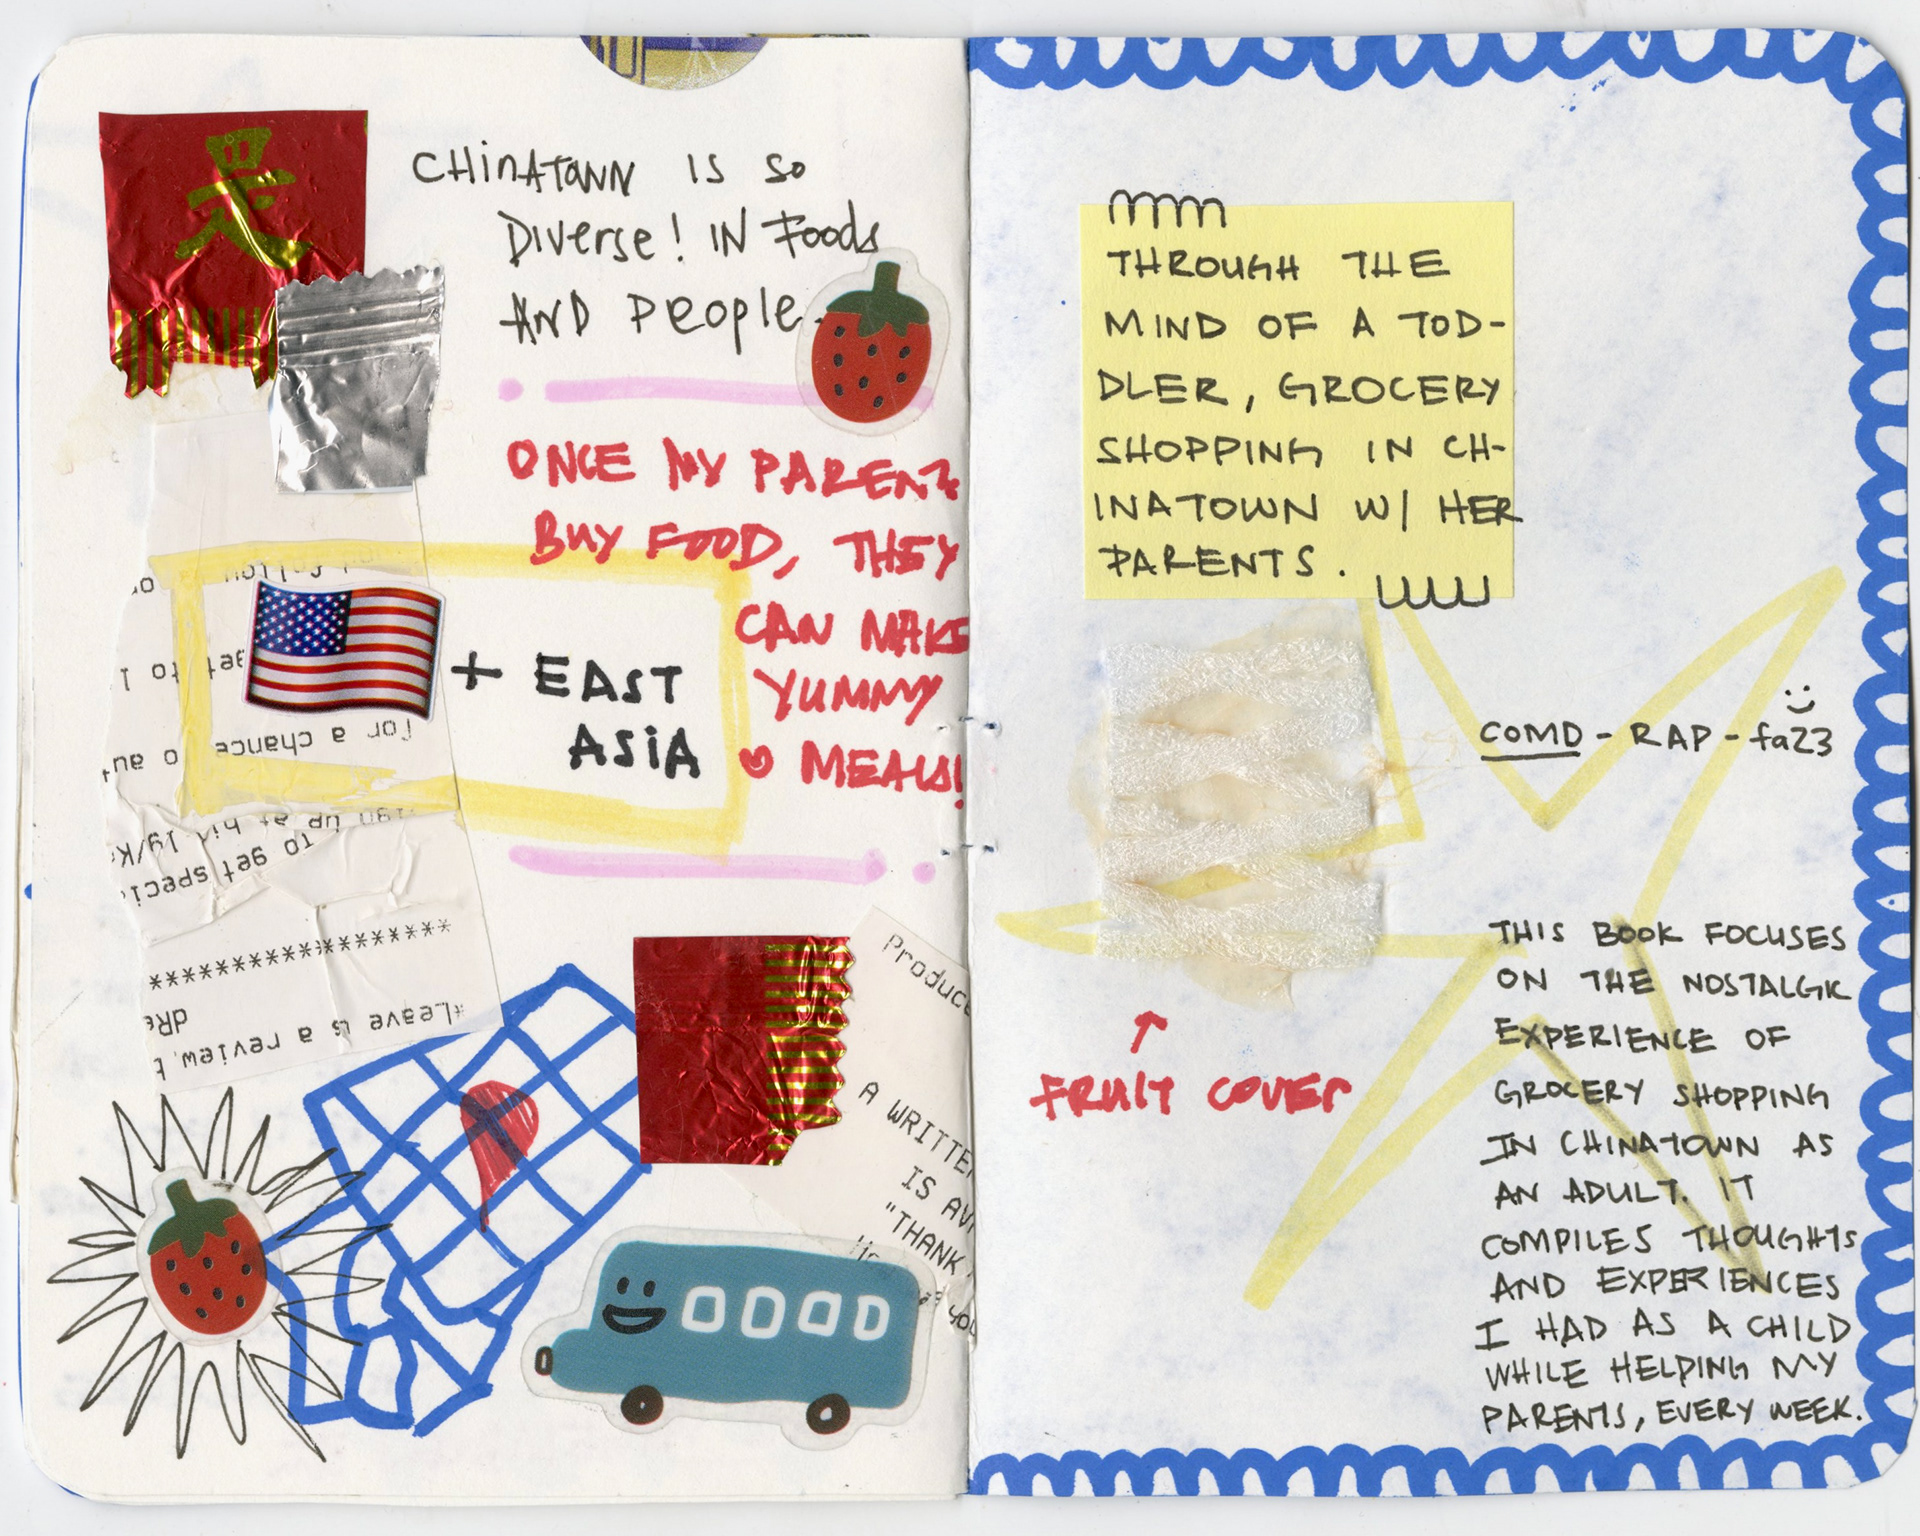 是
CHINATOWN IS SO
DIVERSE! IN FOODS
AND PEOPLE.
ONCE MY PARENTS
BUY FOOD, THEY
CAN MAKE
YUMMY
MEALS!
+ EAST
ASIA
get to 1
for a chance to
sign up at
to get speci
********************
*Leave us a review
Produce
A WRITTE
IS AV
"THANK
you
THROUGH THE
MIND OF A TOD-
DLER, GROCERY
SHOPPING IN CH-
INATOWN W/ HER
PARENTS.
COMD - RAP - fa23
FRUIT COVER
THIS BOOK FOCUSES
ON THE NOSTALGIC
EXPERIENCE OF
GROCERY SHOPPING
IN CHINATOWN AS
AN ADULT. IT
COMPILES THOUGHTS
AND EXPERIENCES
I HAD AS A CHILD
WHILE HELPING MY
PARENTS, EVERY WEEK.